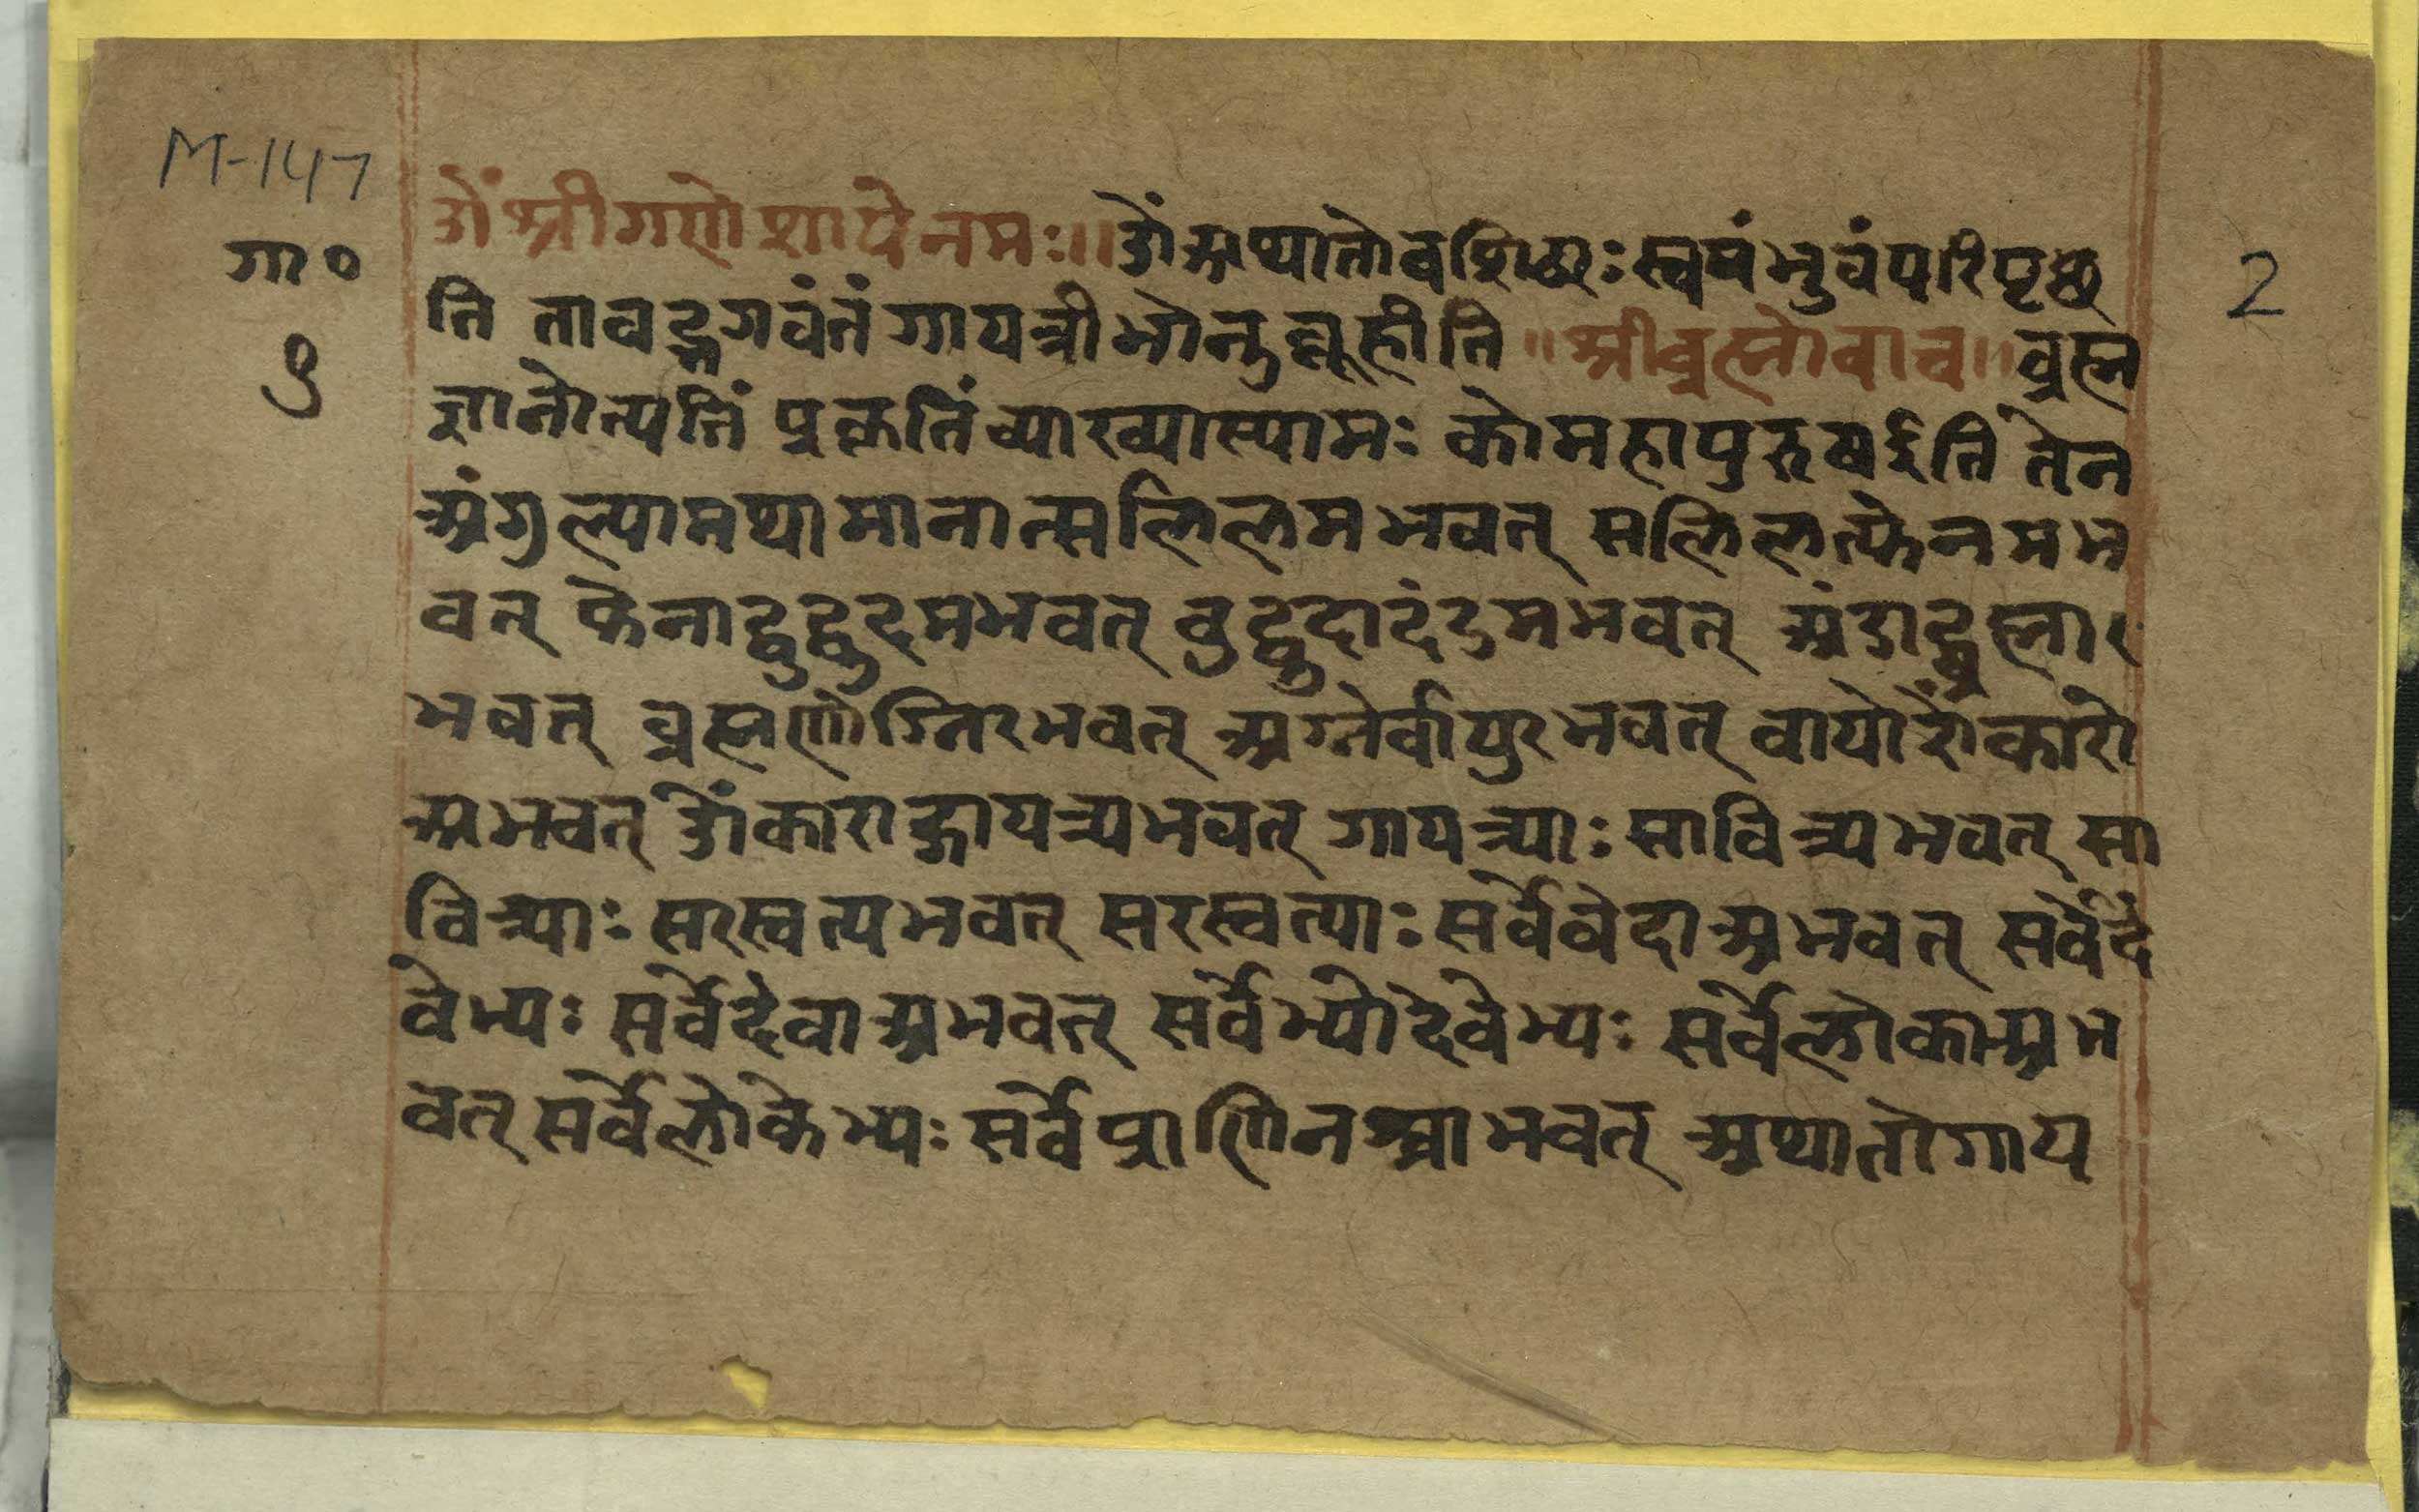 M-147
गा०
१
2
ॐ श्रीगणेशाये नमः ॥ ॐ अथातो वशिष्ठः स्वयंभुवं परिपृछ
ति तावद्भगवंतं गायत्री भोनुब्रूहीति ॥ श्रीब्रह्मोवाच ॥ ब्रह्म
ज्ञानोत्पत्तिं प्रकृतिं व्याख्यास्यामः को महापुरुष इति तेन
अंगुल्यामथ्यामानात्सलिलमभवत् सलिलत्फेनमभ
वत् फेनाद्बुद्बुदमभवत् बुद्बुदादंडमभवत् अंडाद्ब्रह्मार
भवत् ब्रह्मणोग्निरभवत् अग्नेर्वायुरभवत् वायोरोंकारो
अभवत् ॐकाराद्गायत्र्यभवत् गायत्र्याः सावित्र्यभवत् सा
वित्र्याः सरस्वत्यभवत् सरस्वत्याः सर्वेवेदा अभवत् सर्वेदे
वेभ्यः सर्वेदेवा अभवत् सर्वेभ्योदेवेभ्यः सर्वेलोका अभ
वत् सर्वेलोकेभ्यः सर्वे प्राणिनश्चाभवत् अथातो गाय